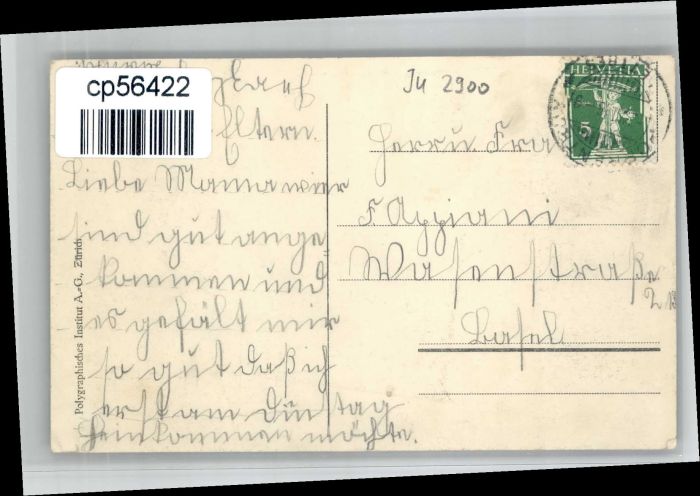 cp56422
Eltern.
Liebe Mama wier
sind gut ange
kommen und
es gefält mir
so gut daß ich
erst am Dinstag
heimkommen möchte.
Polygraphisches Institut A.-G., Zürich
Ju 2900
HELVETIA
5
Herrn Fra
F Appiani
Wasenstraße
Basel